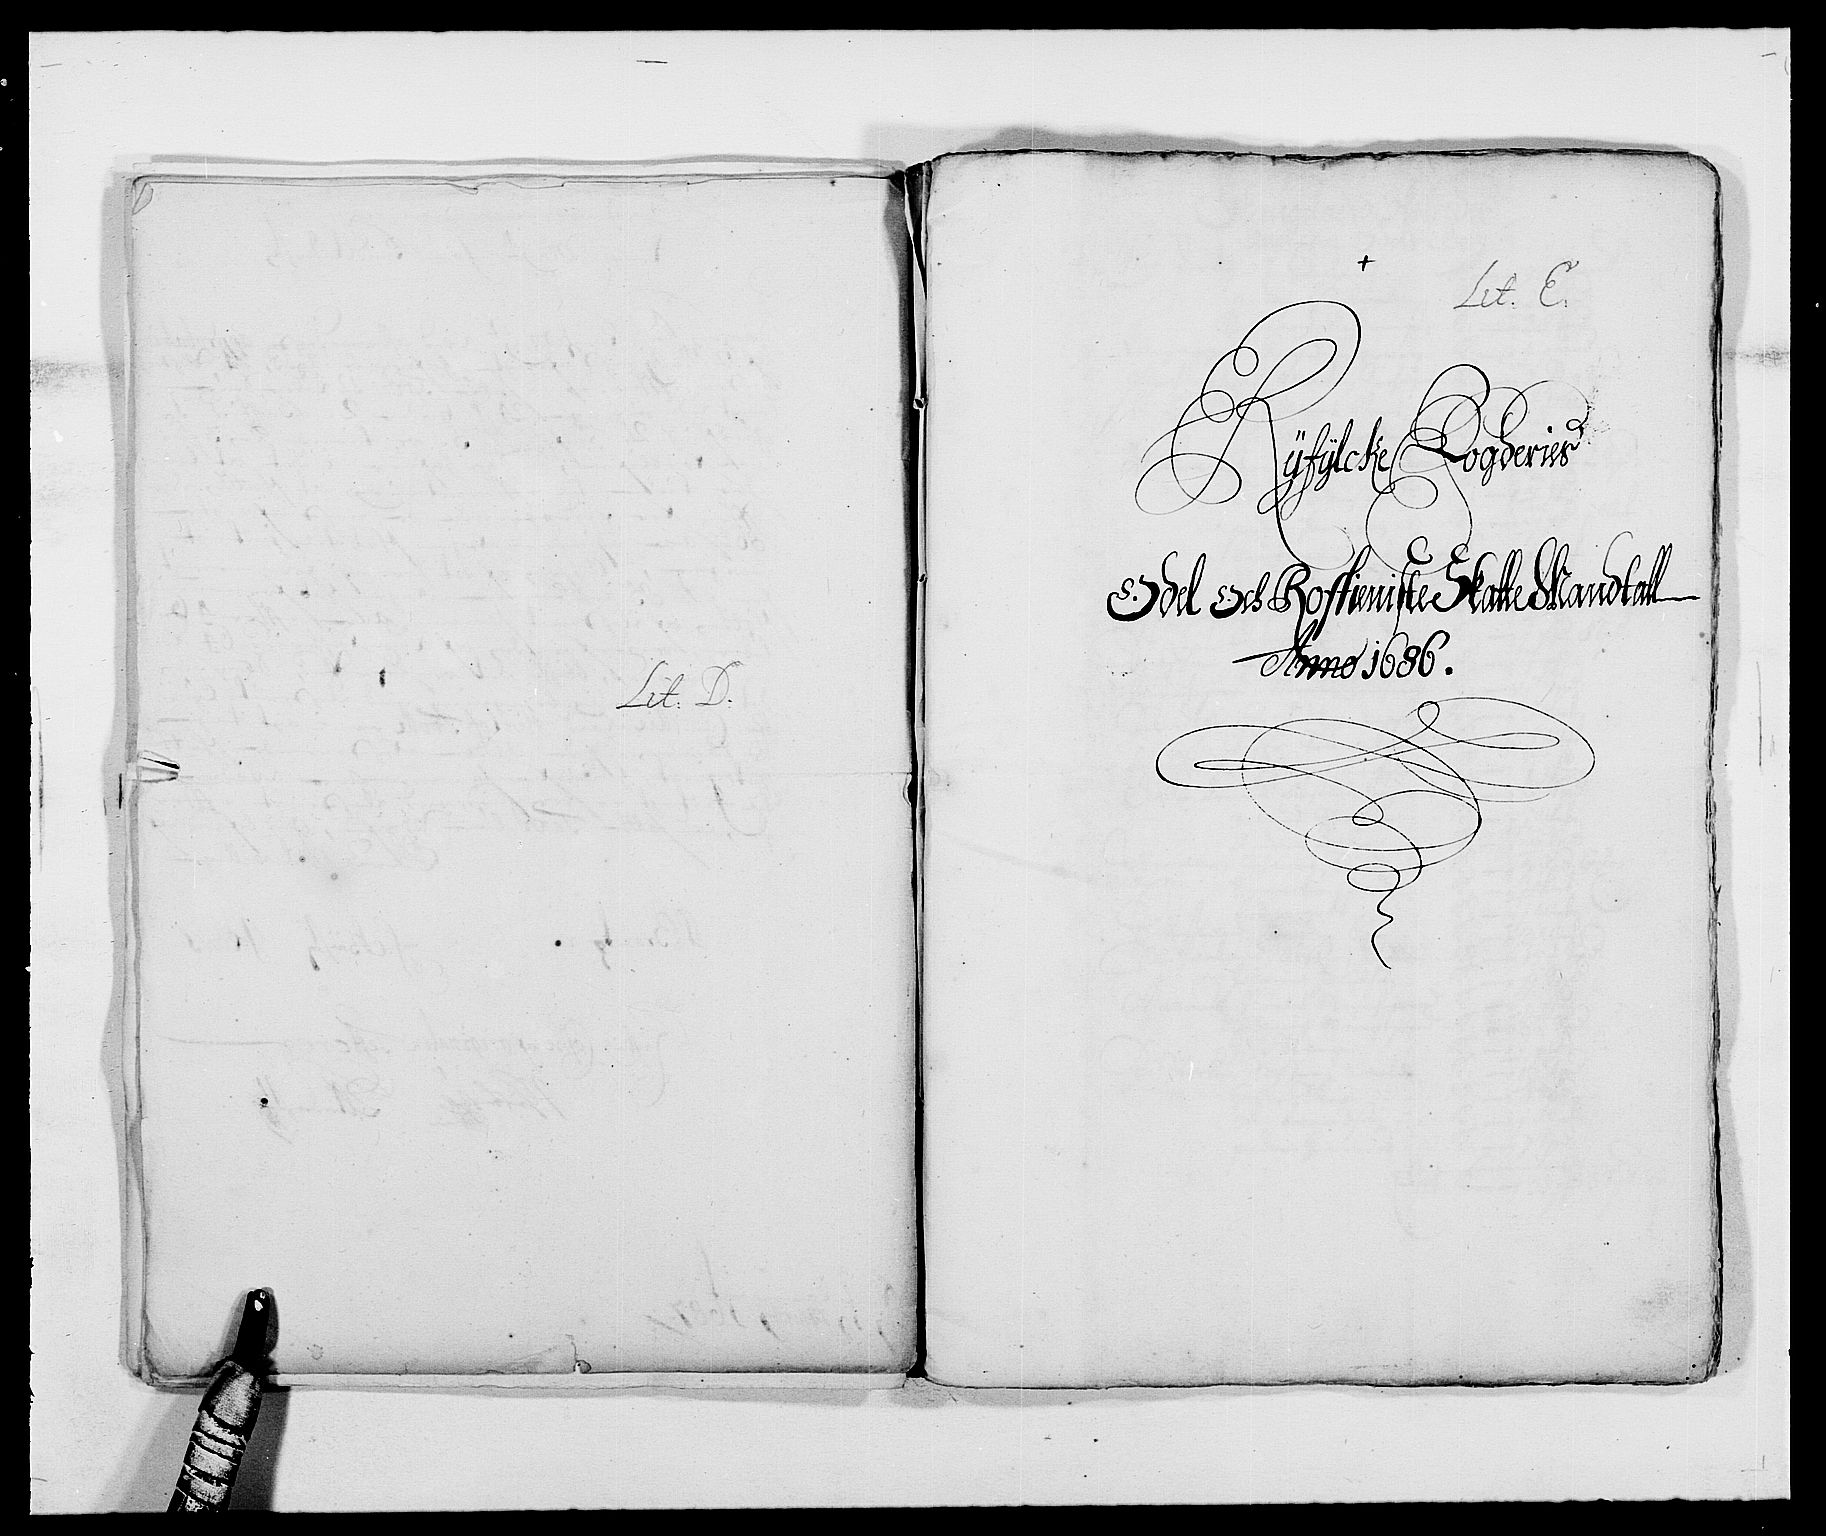 Lit. D.
+
Lit. E.
Rÿfÿlcke Fogderies
Odel Och Rosstieniste Skatte Mandtall
Anno 1686.